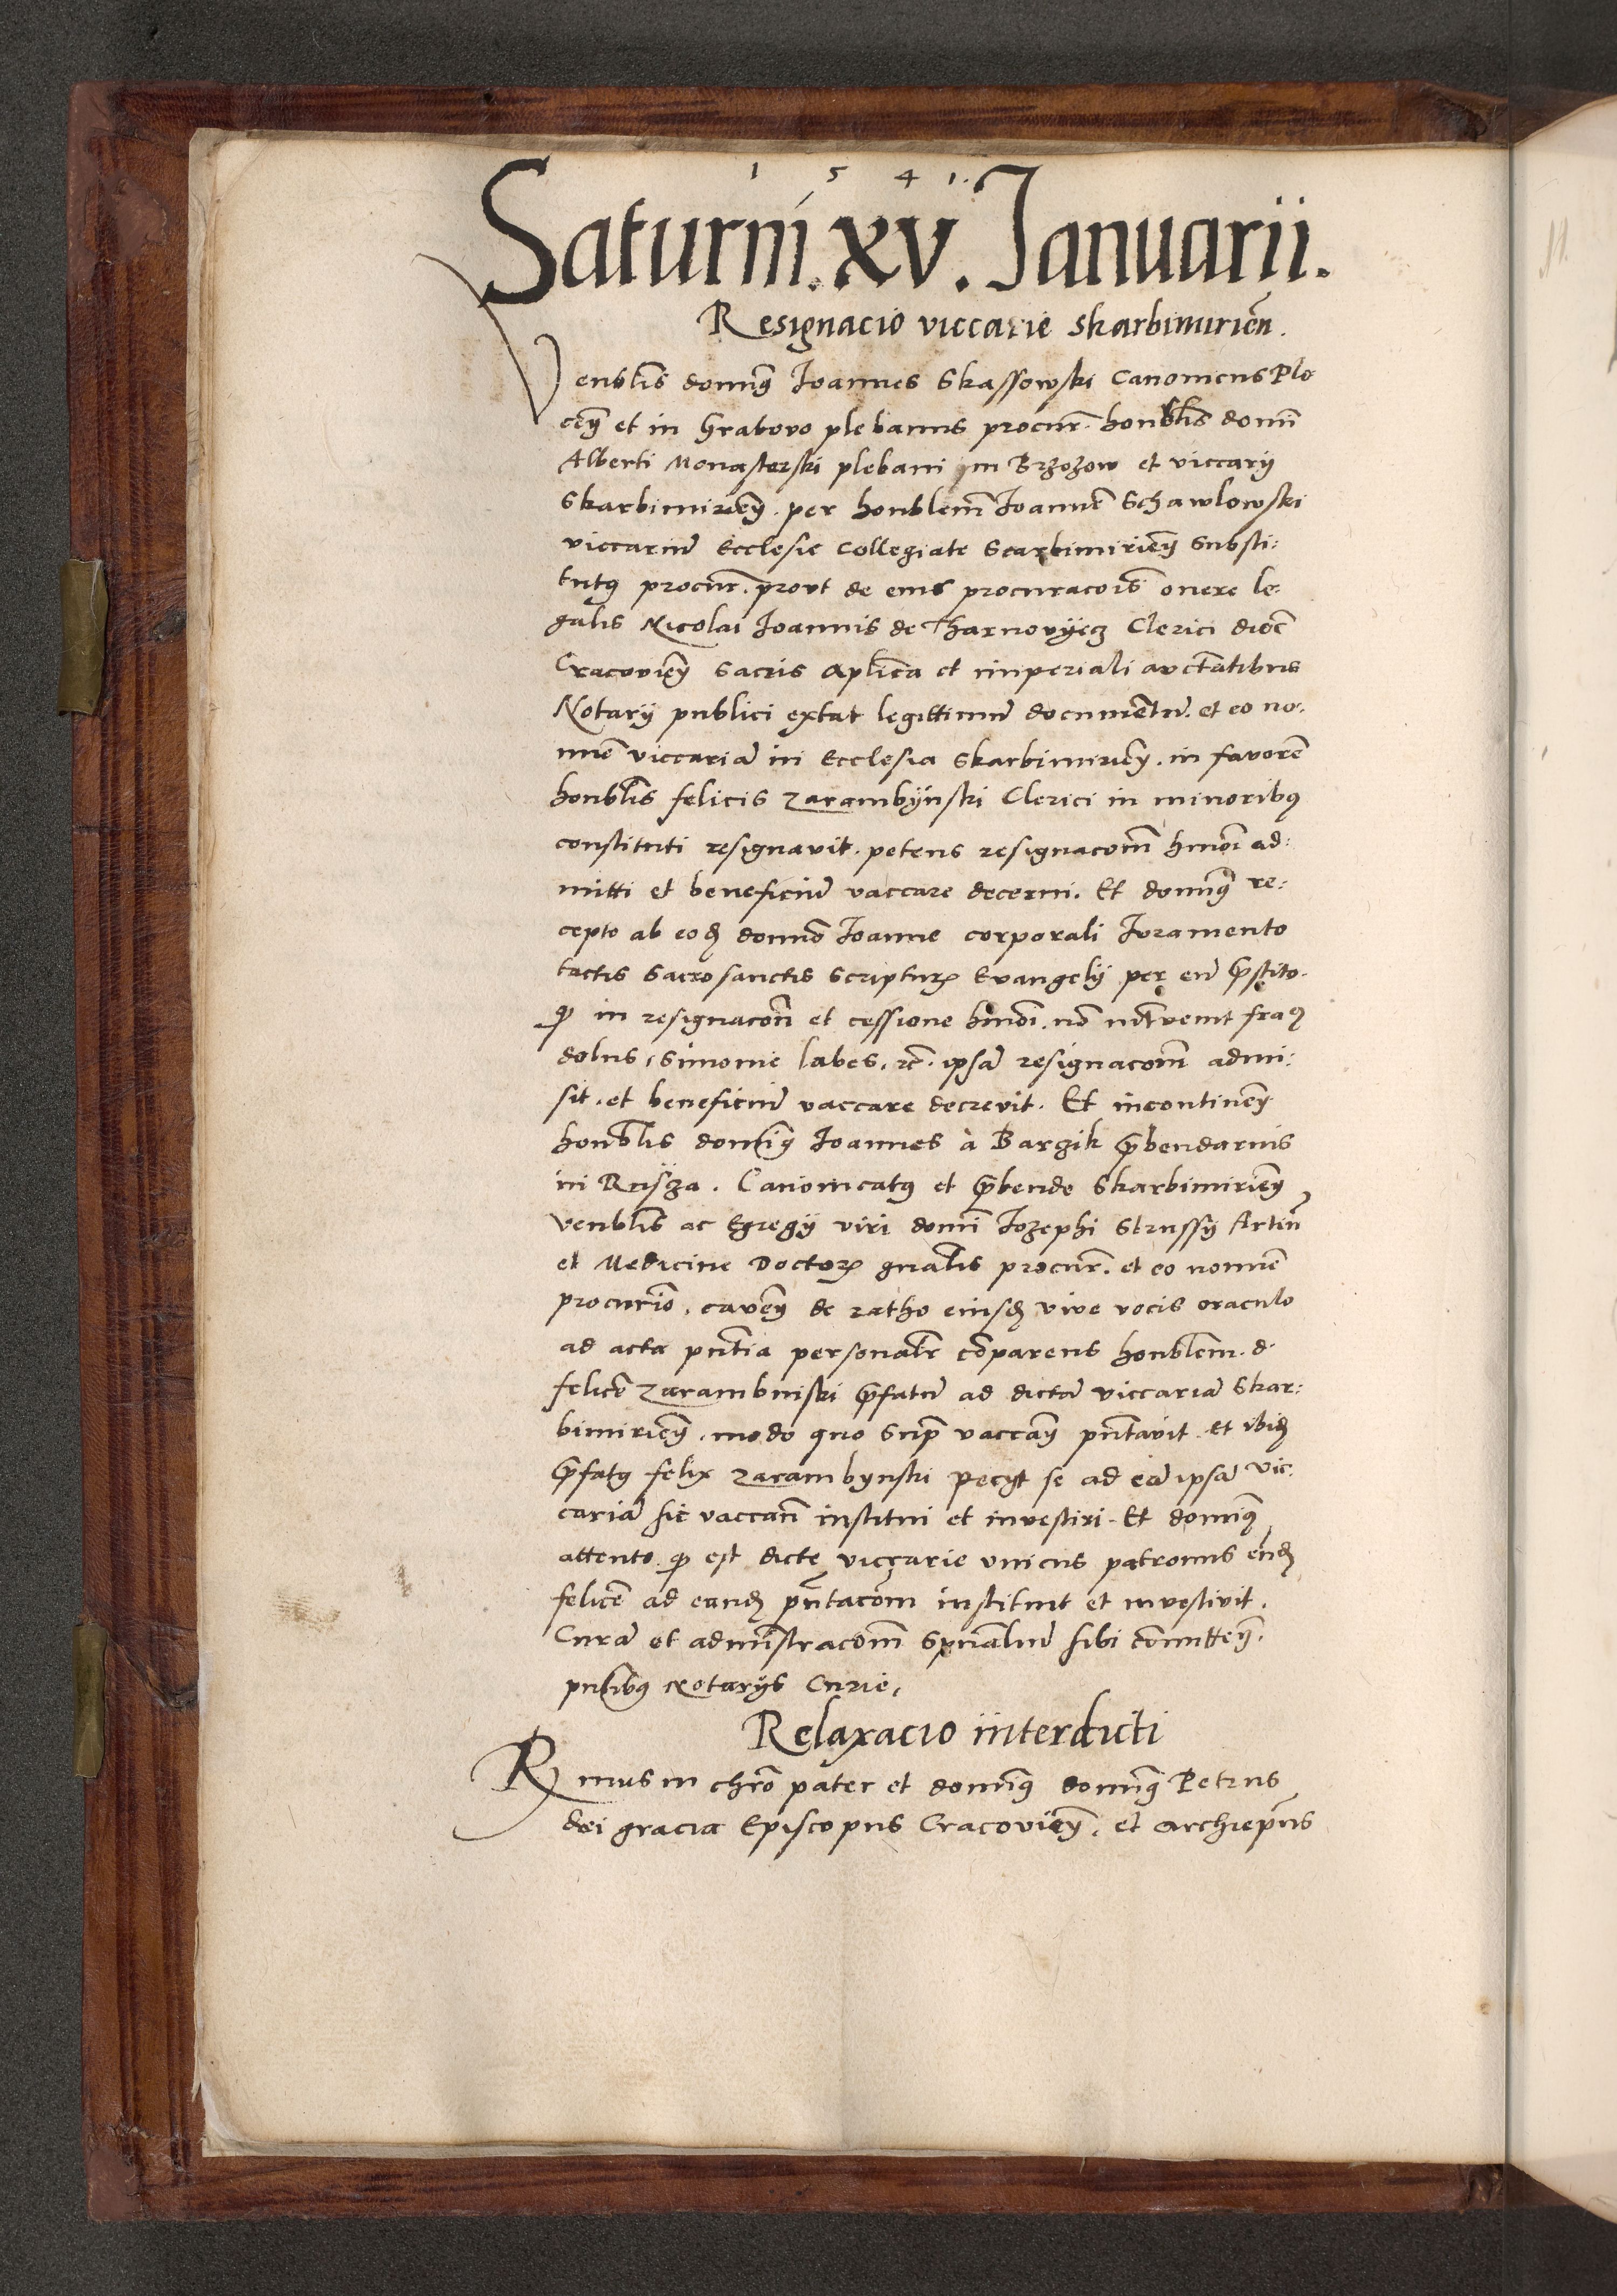 1 5 4 1.
Saturni. xv. Januarii.
Resignacio viccarie Skarbimirien̄.
Venblis̄ domin9 Joannes Skassowski Canonicus Plo
ceñ et in Grabovo plebanus procur̄. honblis̄ domī
Alberti Monasterski plebani in Brzozow et viccarij
Skarbimirieñ. per honblem̄ Joannē Schawlowski
viccariū Ecclesie Collegiate Scarbimirieñ Substi:
tut9 procur̄. prout de eius procuracōis onere le-
galis Nicolai Joannis de Tharnovÿecz Clerici dioc̄
Cracovieñ Sacris Aplica et imperiali auctātibus
Notarij publici extat legittimū documentū. et eo no-
mīe viccariā in Ecclesia Skarbimirieñ. in favorē
honblis̄ felicis Zarambÿnski Clerici in minorib9
constituti resignavit. petens resignacom̄ hmōi ad:
mitti et beneficiū vaccare decerni. Et domin9 re:
cepto ab eod̄ domnō Joanne corporali Juramento
tactis Sacrosanctis Scripturꝝ Evangelij per eū p̄stito.
ꝙ in resignacōn et cessione hmōi. nō intᵉrvenit fraus
dolus, Simonie labes, ꝛc̄. ipsā resignacom̄ admi:
sit. et beneficiū vaccare decrevit. Et incontineñ
honblis̄ domin9 Joannes à Barzik p̄bendarius
in Rusza. Canonicat9 et p̄bende Skarbimirieñ
venblis̄ ac Egregij viri domī Jozephi Strussij Artiū
et Medicine Doctorꝝ gnalis̄ procur̄. et eo nomīe
procuriō. caveñ de ratho eiusd̄ vive vocis oraculo
ad acta pn̄tia personalr̄ cōparens honblem̄. d.
felicē Zarambinski p̄fatū ad dictā viccariā Skar:
bimirieñ. modo quo Supᵃ vaccañ pn̄tavit. et ibid̄
p̄fat9 felix Zarambynski pecÿt se ad eā ipsā vic:
cariā sic vaccan̄ institui et investiri. Et domin9
attento. ꝙ est dicte viccarie vnicus patronus eund̄
felicē ad eand̄ pn̄tacōm instituit et investivit.
Curā et administracōm Spūaliū sibi cōmitteñ.
pn̄tibus Notarijs Curie.
Relaxacio interdicti
Rmus in chrō pater et domin9 domin9 Petrus
dei gracia Episcopus Cracovieñ. et Archiep̄us